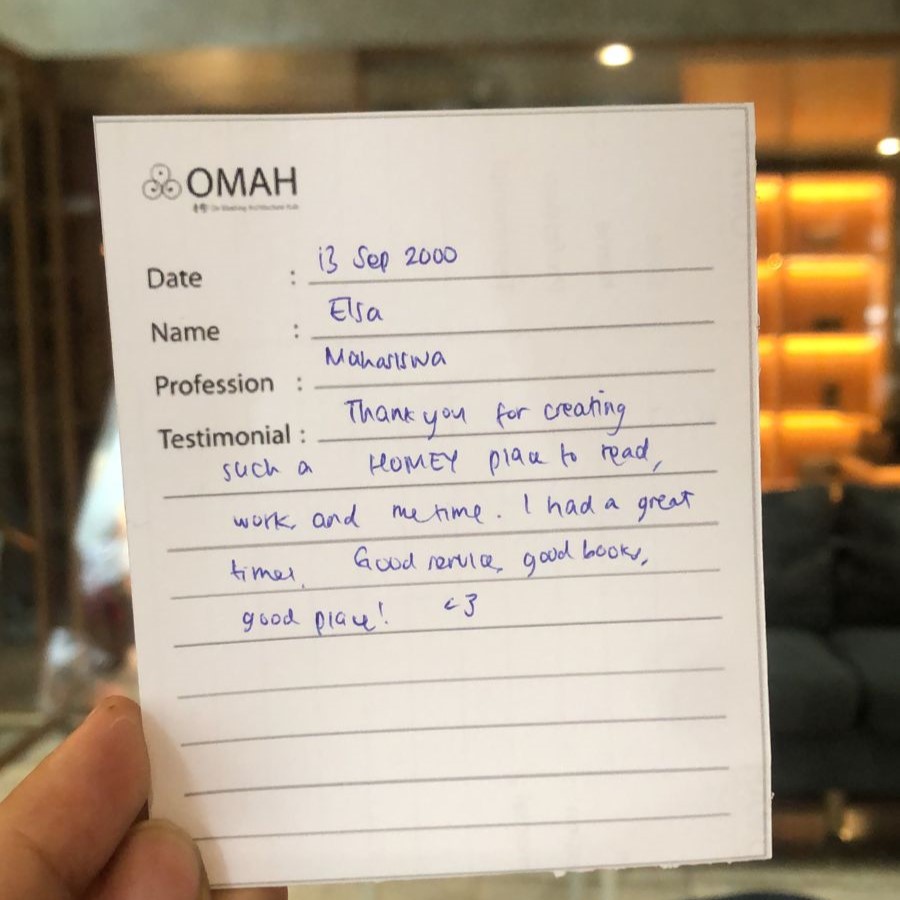 OMAH
Date : 13 Sep 2000
Name : Elsa
Profession : Mahasiswa
Testimonial : Thank you for creating
such a HOMEY place to read,
work, and me time. I had a great
times. Good service, good books,
good place! <3